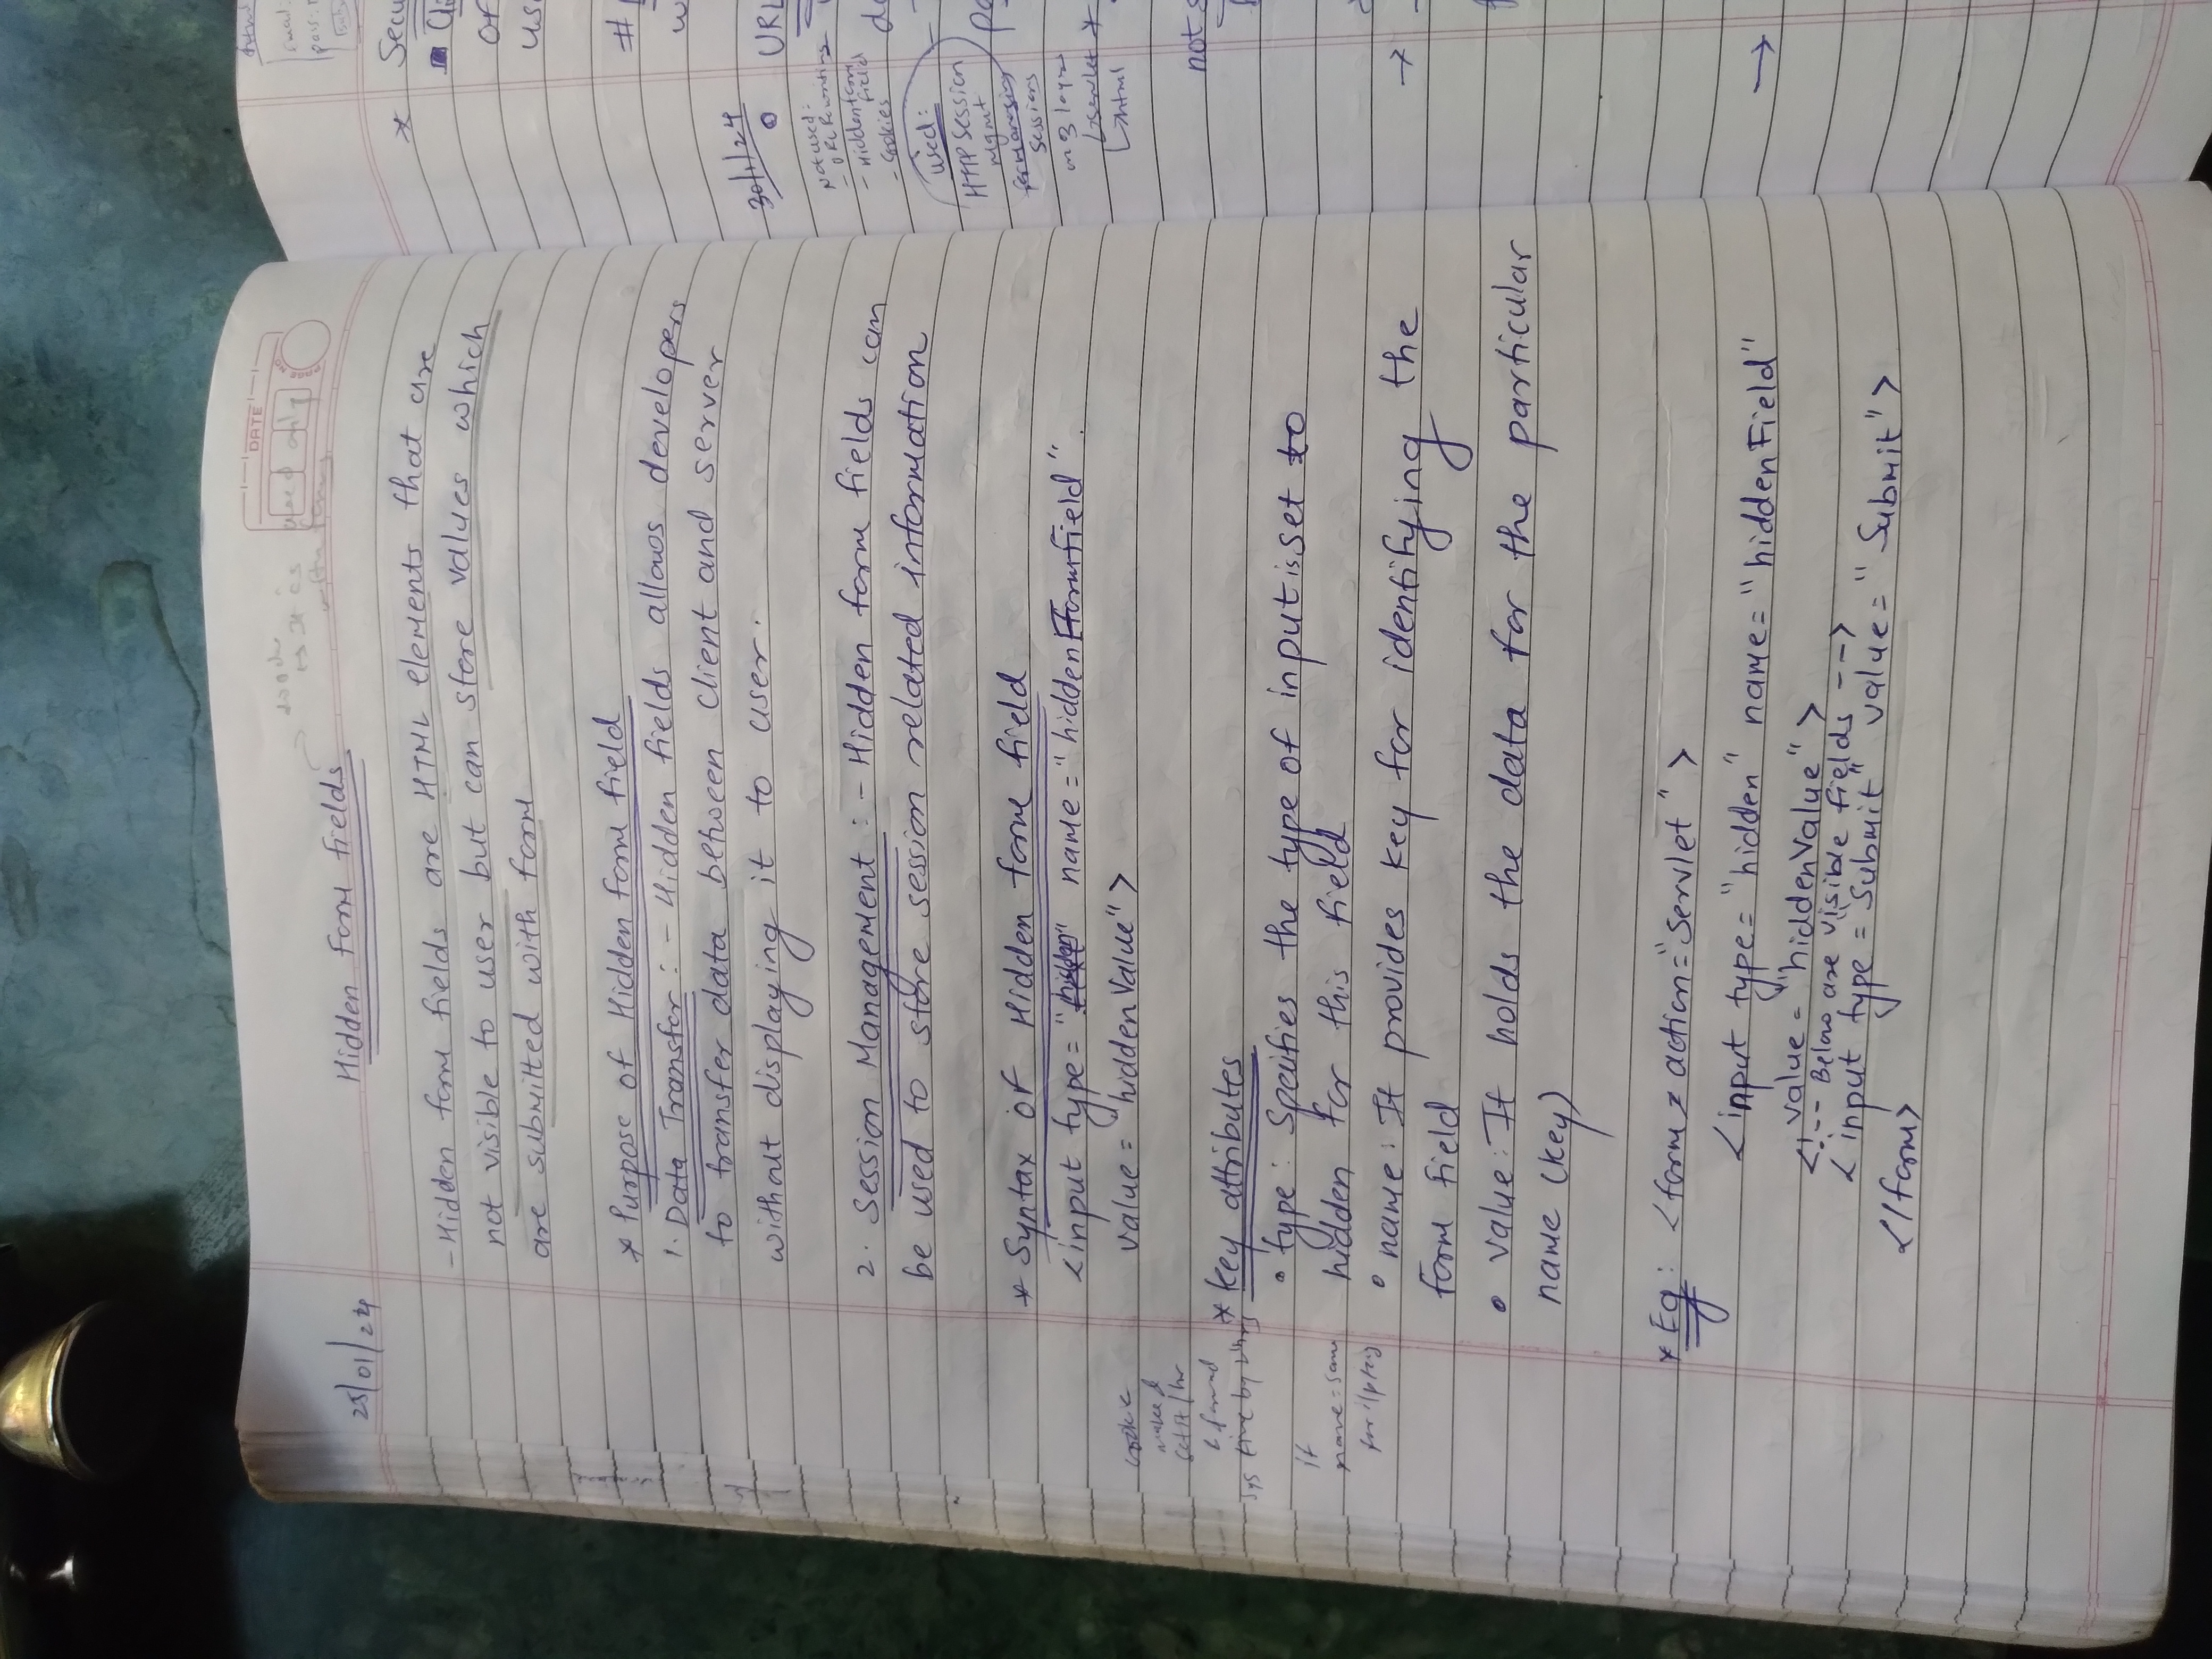 DATE
PAGE NO.
it is used only
with forms
25/01/24
Hidden form fields
- Hidden form fields are HTML elements that are
not visible to user but can store values which
are submitted with form
* Purpose of Hidden form field
1. Data Transfer : - Hidden fields allows developers
to transfer data between client and server
without displaying it to user.
2. Session Management : - Hidden form fields can
be used to store session related information
* Syntax of Hidden form field
<input type="hidden" name="hiddenFormfield"
value = "hiddenValue">
cookie
make &
set it / hr
* key attributes
• type: Specifies the type of input is set to
hidden for this field
if
name = same
for i/p tag
• name: It provides key for identifying the
form field
• value: It holds the data for the particular
name (key)
* Eg: <form action="Servlet">
<input type="hidden" name="hiddenField"
value = "hiddenValue">
<!-- Below are visible fields -->
<input type="Submit" value="Submit">
</form>
* Secu
Cli
of
us
#
w
30/1/24
URL
Not used:
- URL Rewriting
- Hidden form
field
- Cookies
used:
HTTP Session
mgmt
for managing
sessions
on 3 layer
servlet *
html
not s